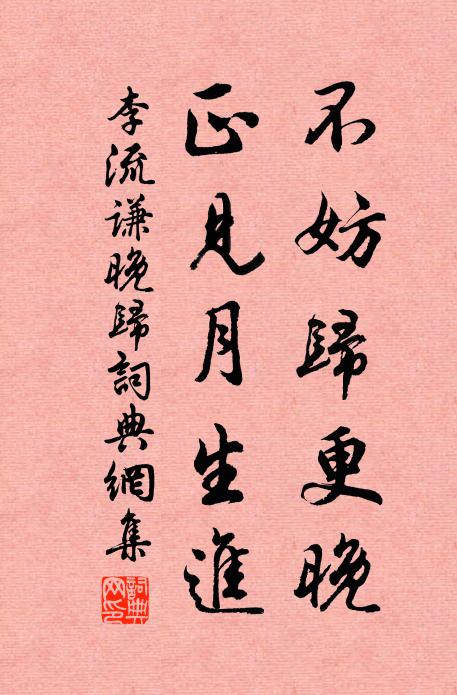 不妨歸更晚
正見月生進
李流謙晚歸詞典網集
詞典網印